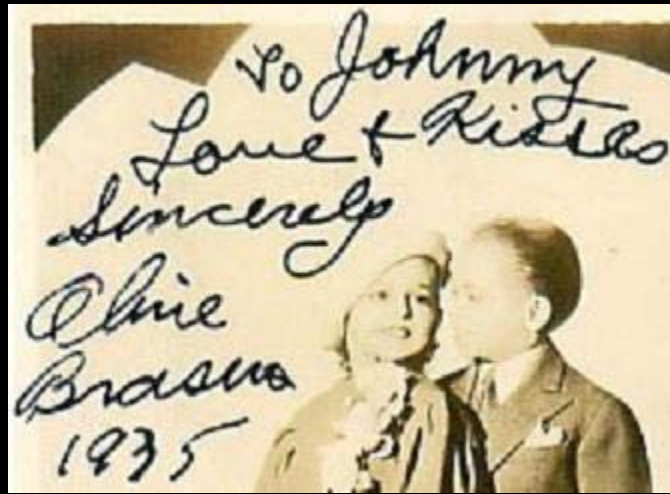 To Johnny
Love + Kisses
Sincerely
Olive
Brasno
1935